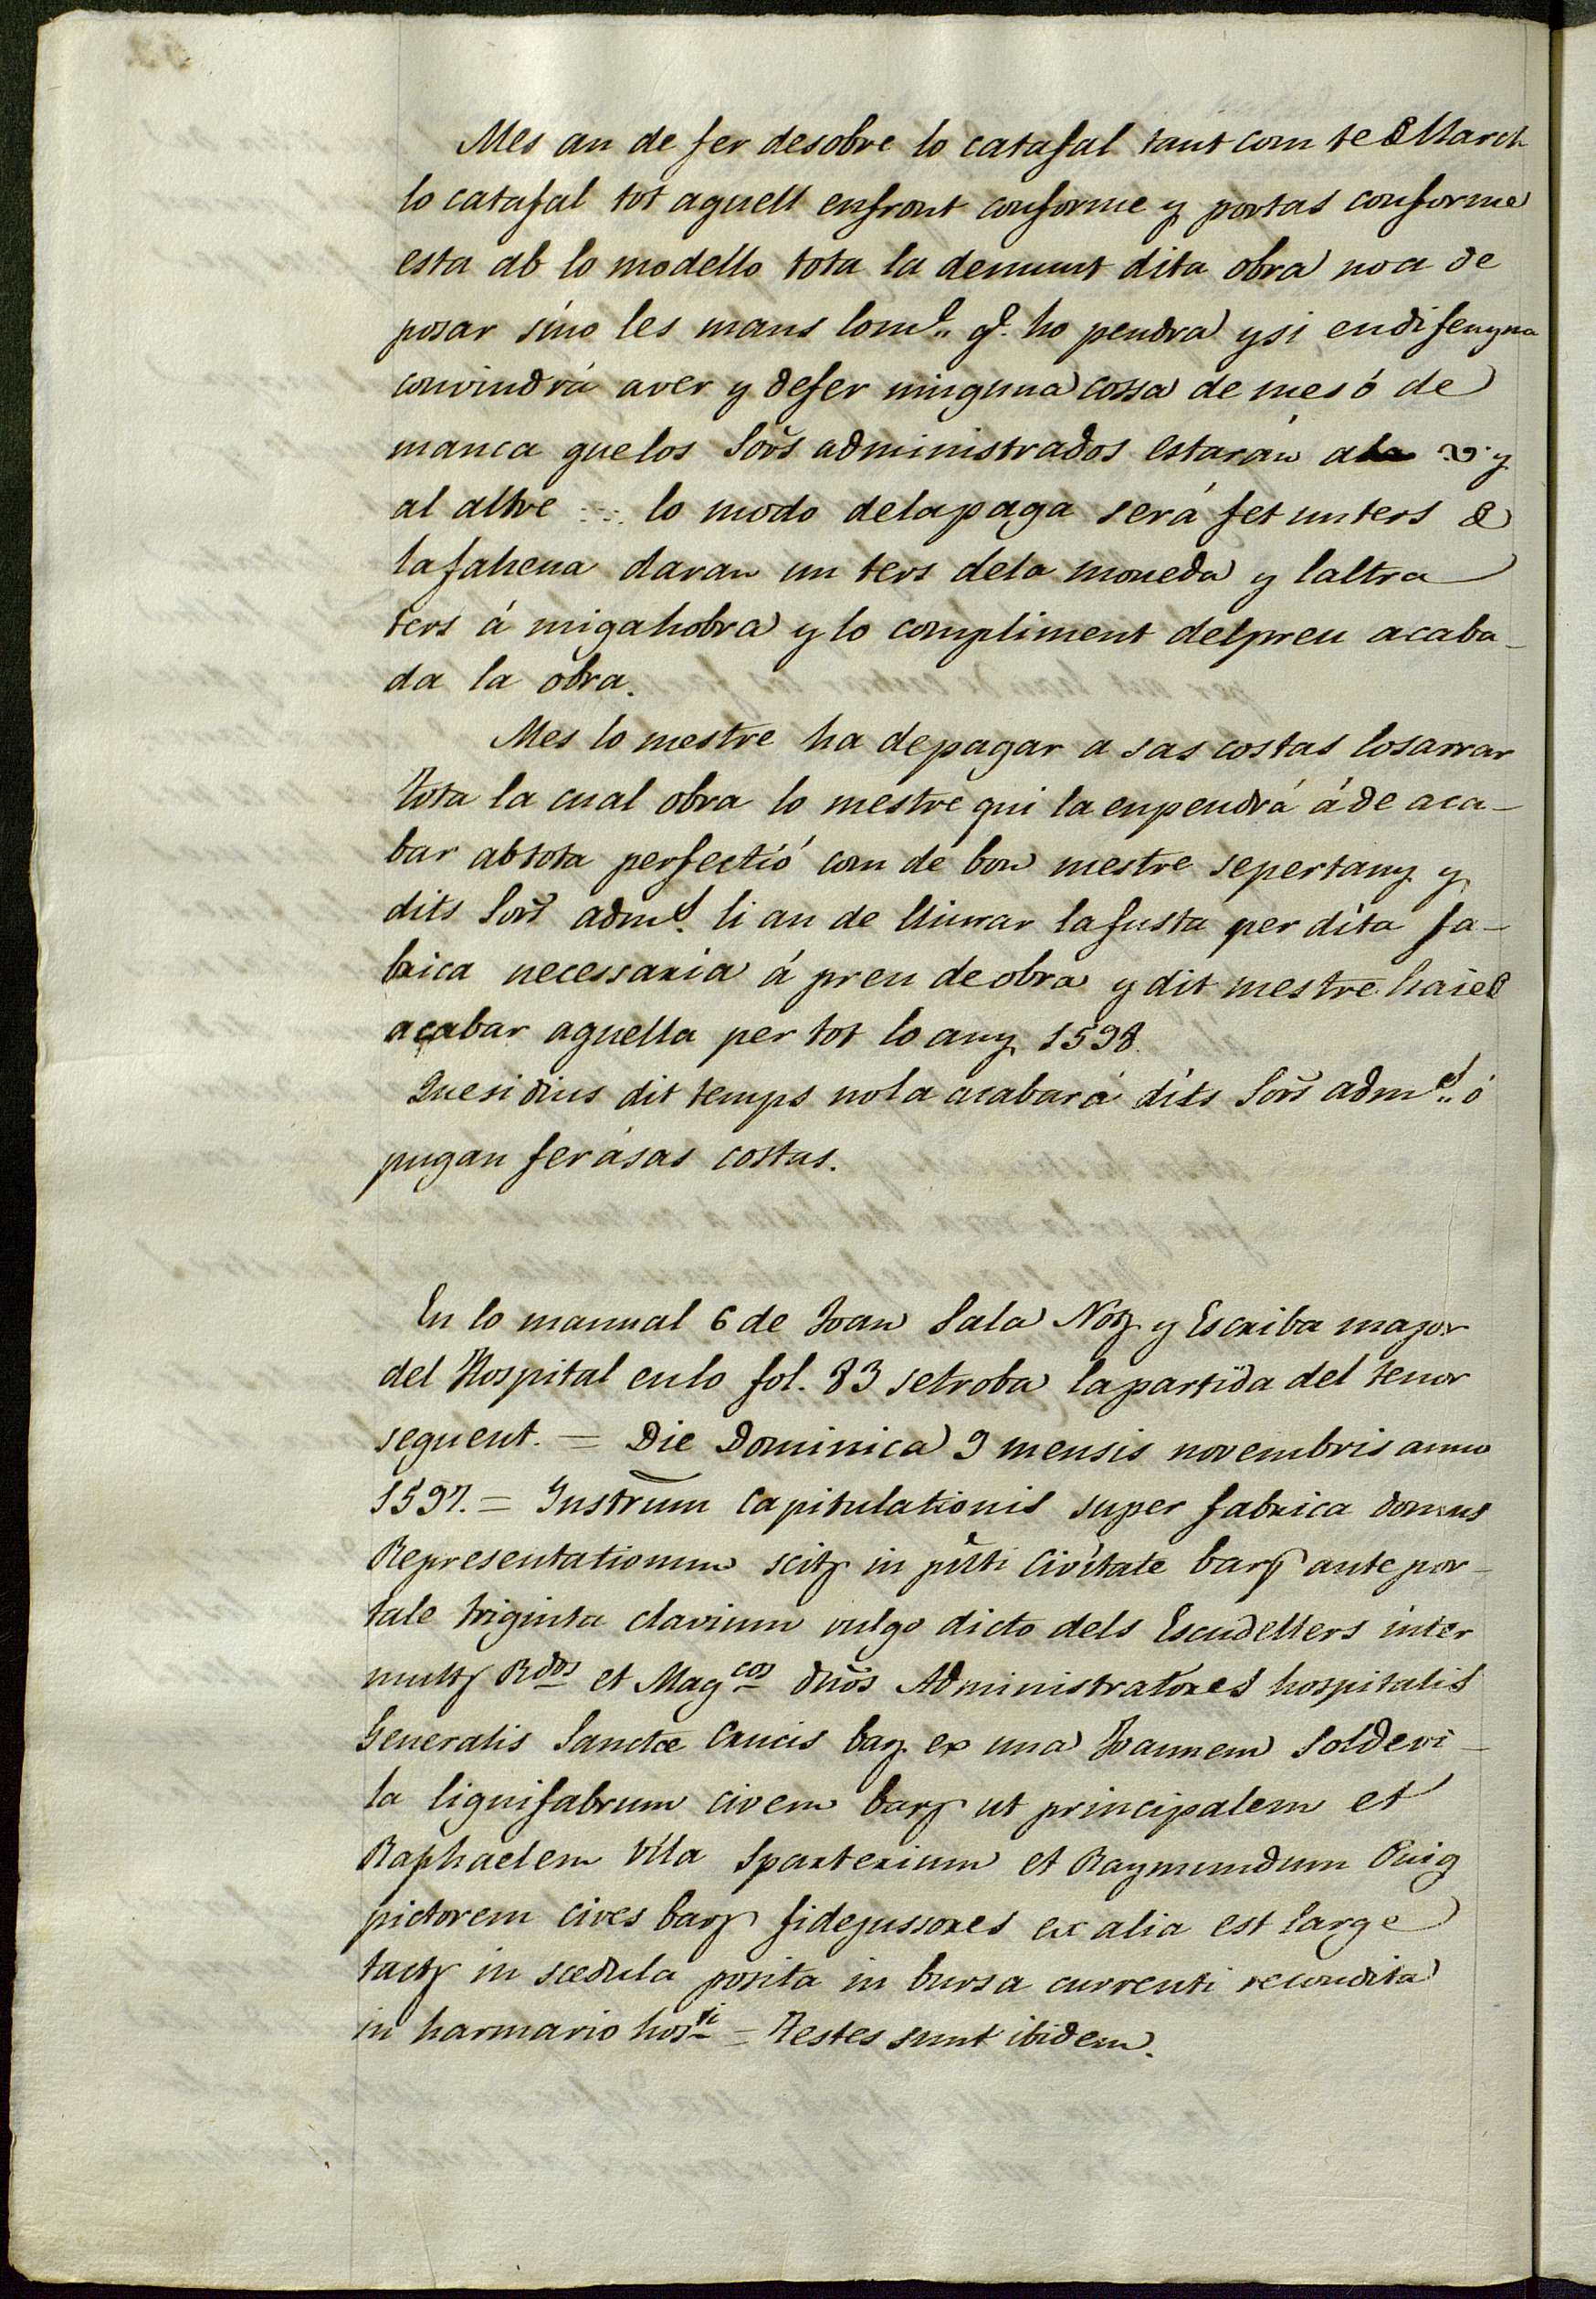 Mes an de fer desobre lo catafal tant com te de March
lo catafal tot aquell enfront conforme y portas conforme
esta ab lo modello tota la demunt dita obra noa de
posar sino les mans lom.e q.e ho pendra ysi endisenyna
convindrá aver y defer ninguna cossa de mesó de
manca quelos Sõrs administrados estarán y
al altre lo modo delapaga será fet unters de
lafahena daran un ters dela moneda y laltra
ters á migahobra y lo compliment delpreu acaba-
da la obra.
Mes lo mestre ha depagar a sas costas losarrar
Tota la cual obra lo mestre qui la enpendrá áde aca-
bar abtota perfectió com de bon mestre sepertany y
dits Sors adm.s li an de lliurar lafusta per dita fa-
brica necessaria á preu de obra y dit mestre haie de
acabar aquella per tot lo any 1598.
Quesidins dit temps nola acabará dits Sors adm.s ó
pugan ferásas costas.
En lo manual 6 de Joan Sala Not y Escriba major
del Hospital enlo fol. 83 setroba lapartida del tenor
seguent. = Die Dominica 9 mensis novembris anno
1597. = Instrum̃ Capitulationis super fabrica domus
Representationum scitȝ in pñti Civitate barȝ ante por-
tale triginta clavium vulgo dicto dels Escudellers inter
multȝ Rdos et Magcos dños Administratores hospitalis
Generalis Sanctæ Crucis barȝ ex una Joannem Soldevi-
la lignifabrum civem barȝ ut principalem et
Raphaelem Vila Sparterium et Raymundum Puig
pictorem cives barȝ fidejussores ex alia est large
tactȝ in scedula posita in bursa currenti recondita
in harmario hosti = Testes sunt ibidem.